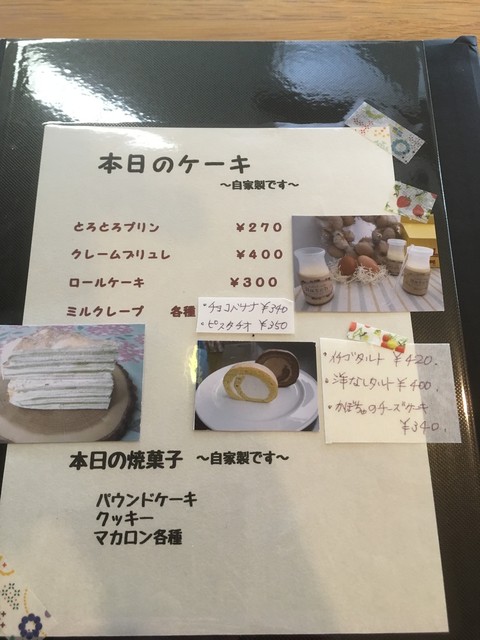 本日のケーキ
～自家製です～
とろとろプリン ￥270
クレームブリュレ ￥400
ロールケーキ ￥300
ミルクレープ 各種
・チョコバナナ ￥340
・ピスタチオ ￥350
・イチゴタルト ￥420.
・洋なしタルト ￥400.
・かぼちゃのチーズケーキ
￥340.
本日の焼菓子 ～自家製です～
パウンドケーキ
クッキー
マカロン各種